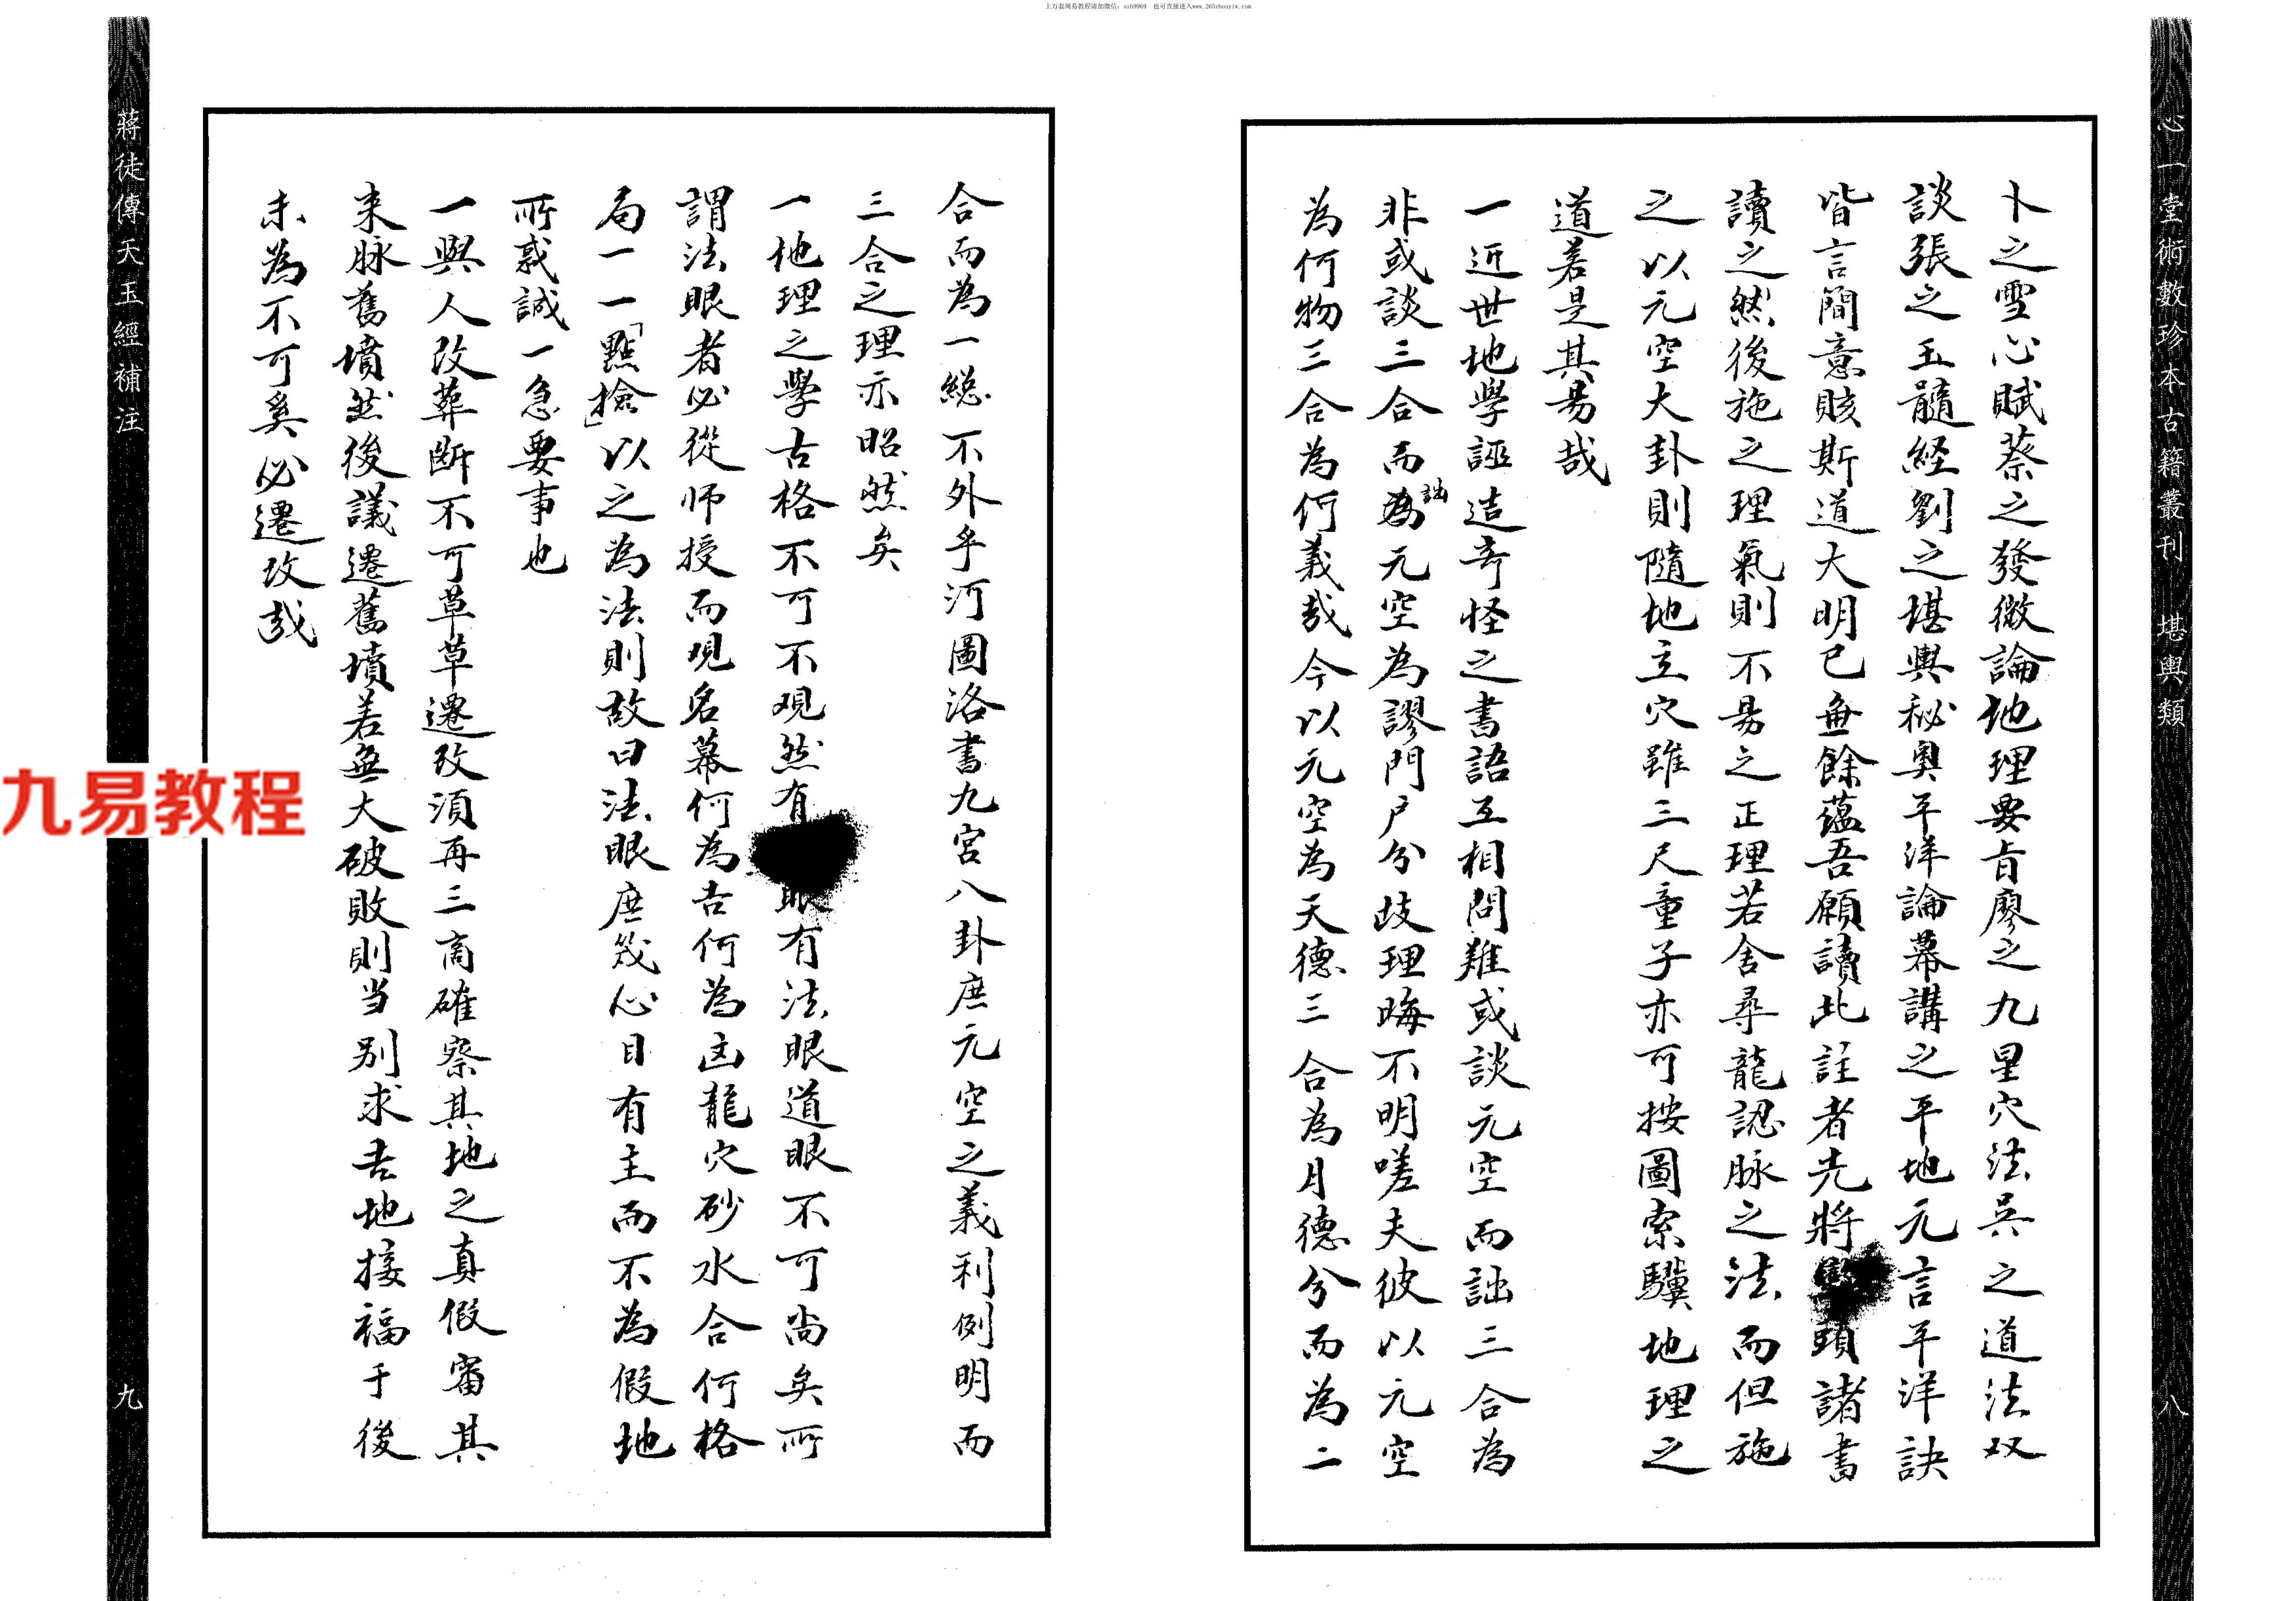 上万套周易教程请加微信：azh9969　也可直接进入www.265zhouyiw.com
心一堂術數珍本古籍叢刊　堪輿類
八
卜之雪心賦蔡之發微論地理要旨廖之九星穴法吳之道法双
談張之玉髓經劉之堪輿秘奥平洋論幕講之平地元言平洋訣
皆言簡意賅斯道大明已無餘蘊吾願讀此註者先將頭諸書
讀之然後施之理氣則不易之正理若舍尋龍認脉之法而但施
之以元空大卦則隨地立穴雖三尺童子亦可按圖索驥地理之
道若是其易哉
一近世地學誣造奇怪之書語互相問難或談元空而詘三合為
非或談三合而為詘元空為謬門戶分歧理晦不明嗟夫彼以元空
為何物三合為何義哉今以元空為天德三合為月德分而為二
合而為一總不外乎河圖洛書九宮八卦庶元空之義利例明而
三合之理亦昭然矣
一地理之學古格不可不观然有眼有法眼道眼不可尚矣所
謂法眼者必從师授而观名墓何為吉何為凶龍穴砂水合何格
局一一「點撿」以之為法則故曰法眼庶幾心目有主而不為假地
所惑誠一急要事也
一與人改葬断不可草草遷改須再三商確察其地之真假審其
来脉舊墳然後議遷舊墳若無大破敗則当别求吉地接福于後
未為不可奚必遷改哉
蔣徒傳天玉經補注
九
九易教程